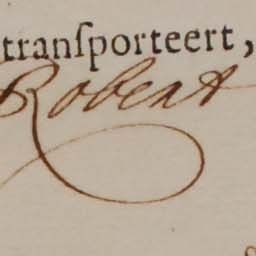 tranſporteert,
Robert